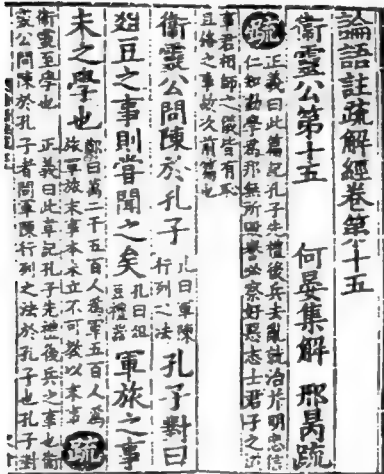 論語註疏解經卷第十五
衛靈公第十五　何晏集解　邢昺疏
疏 正義曰此篇記孔子先禮後兵去亂就治并明忠信
仁知勸學為邦無所毀譽必察好惡志士君子之道
事君相師之儀皆有恥
且格之事故次前篇也
衛靈公問陳於孔子 孔曰軍陳
行列之法 孔子對曰
俎豆之事則嘗聞之矣 孔曰俎
豆禮器 軍旅之事
未之學也 鄭曰萬二千五百人為軍五百人為
旅軍旅末事本未立不可教以末事 疏
衛靈至學也 正義曰此章記孔子先禮後兵之事也衛
靈公問陳於孔子者問軍陳行列之法於孔子也孔子對